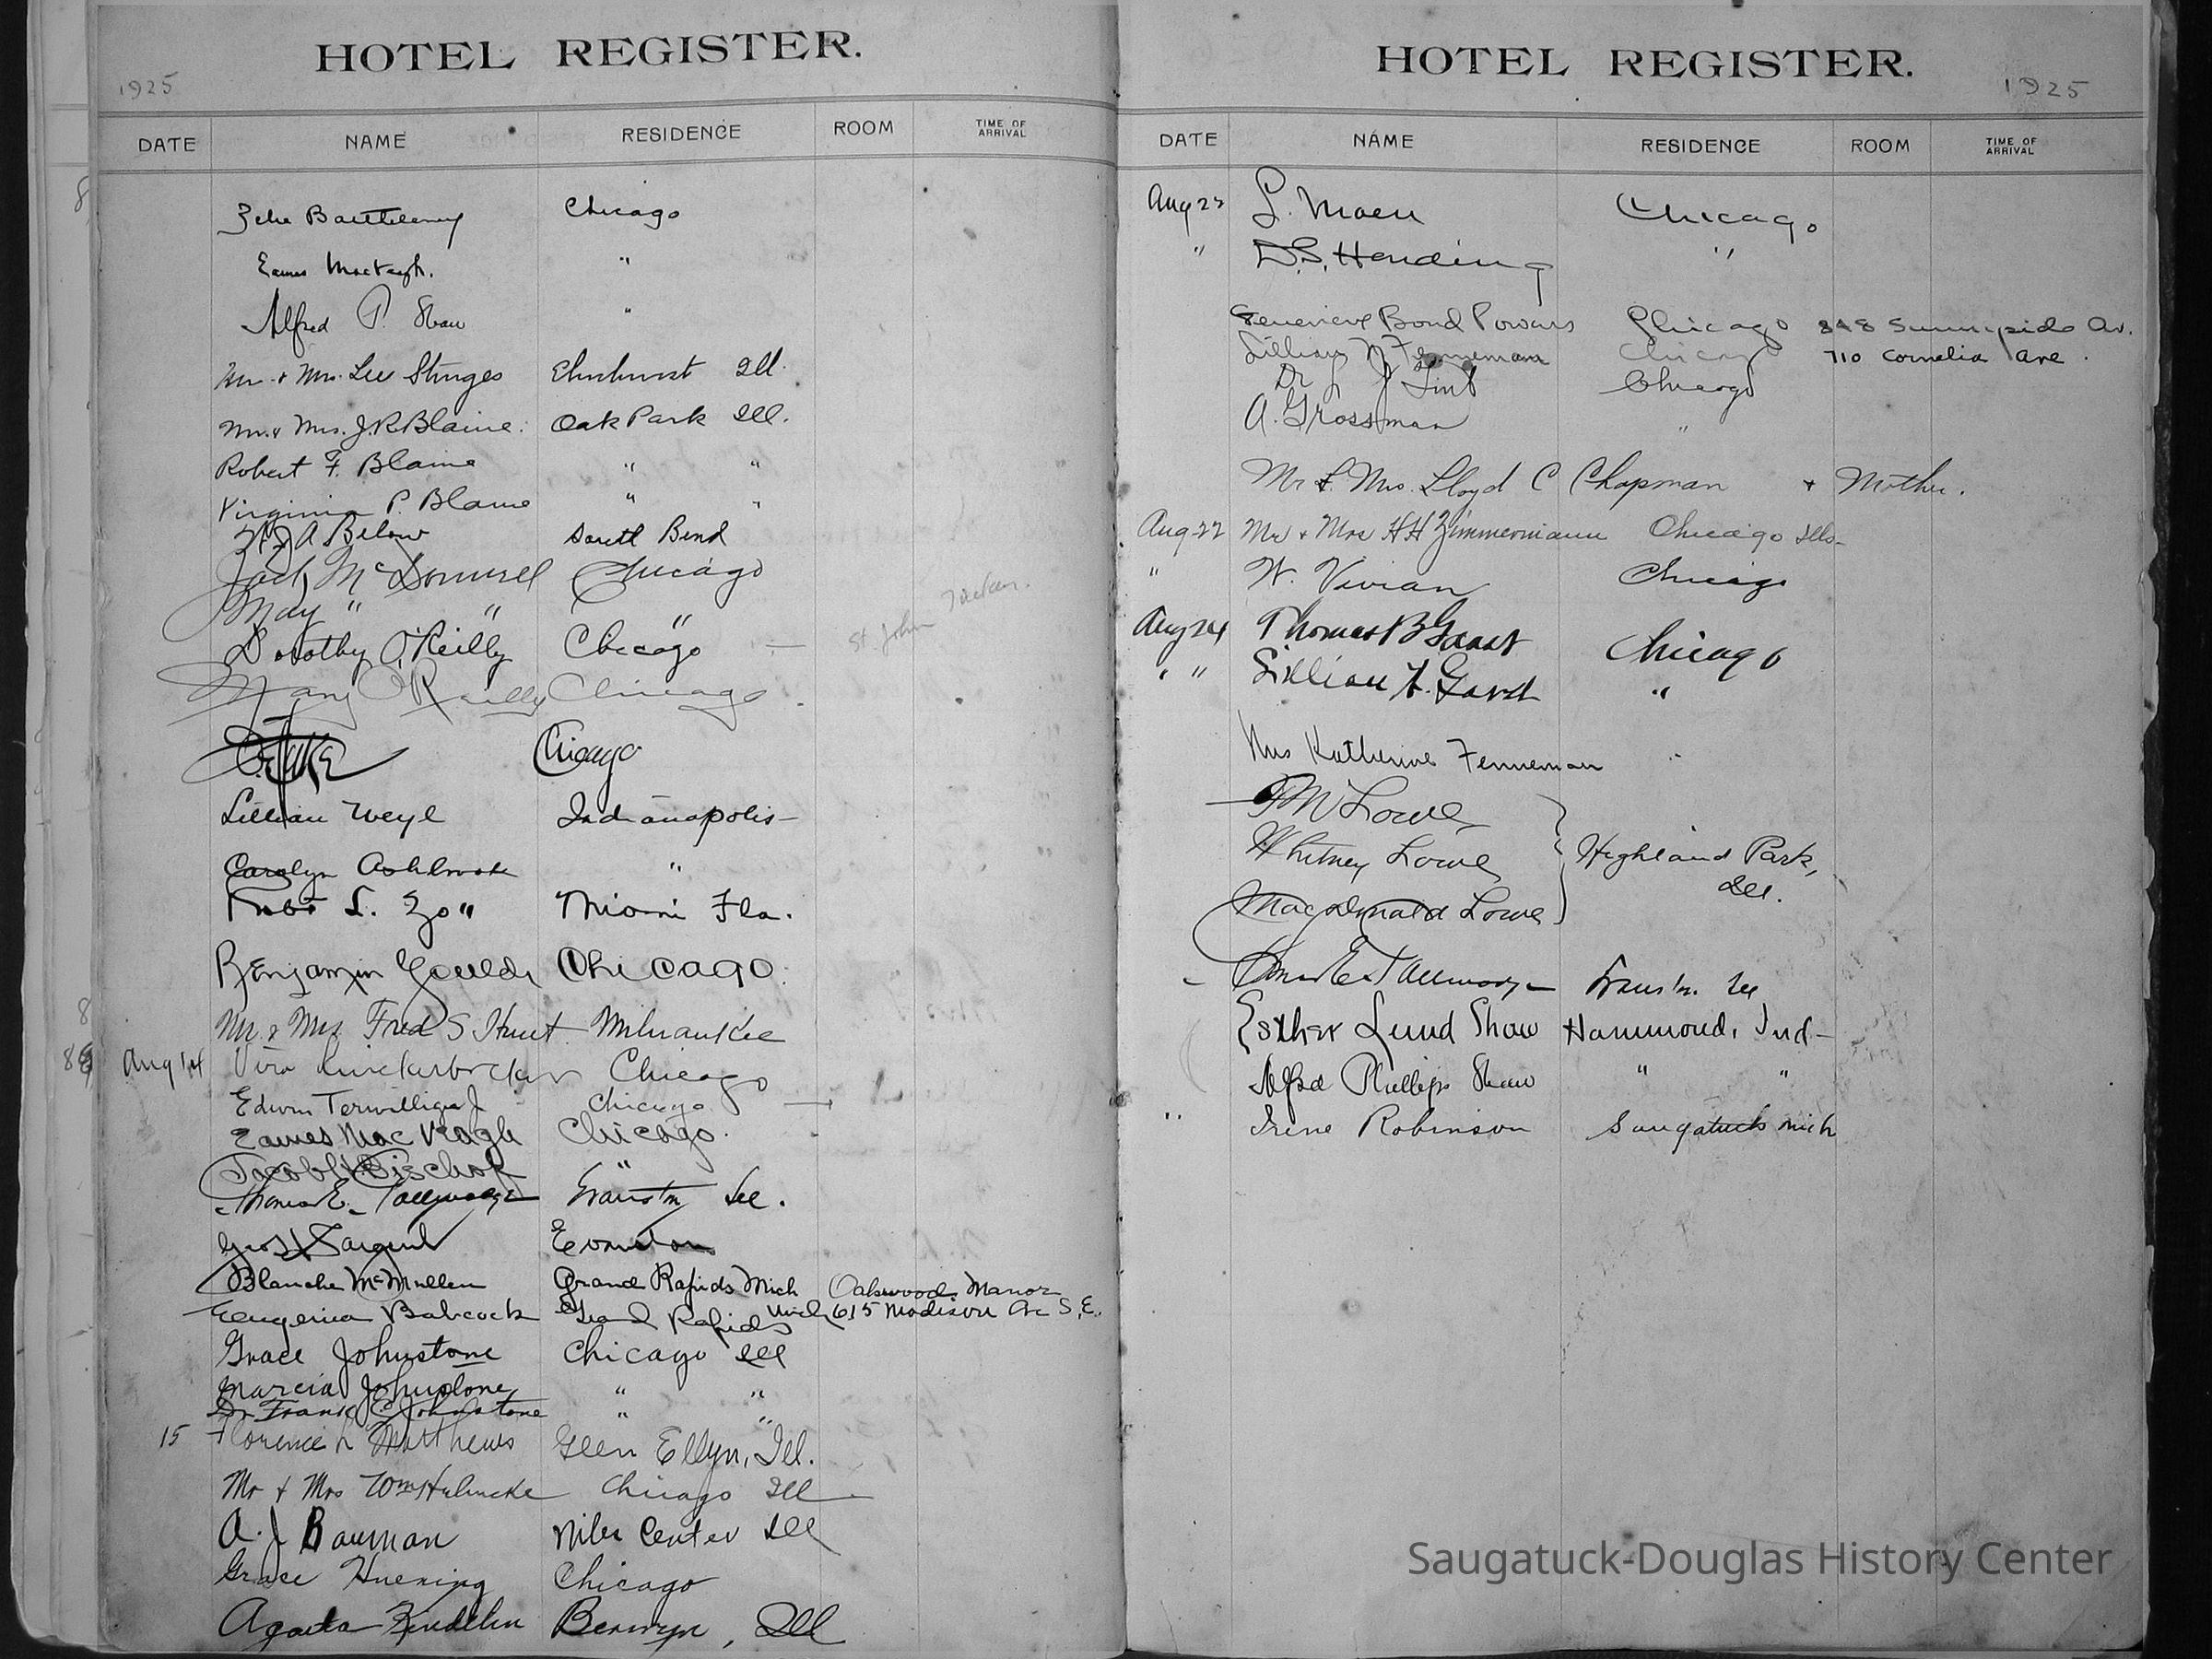 HOTEL REGISTER.
1925
DATE NAME RESIDENCE ROOM TIME OF ARRIVAL
Chicago
Eames "
Alfred P. Shaw "
Mr. + Mrs. Lee Sturges Elmhurst Ill.
Mr. & Mrs. J.R. Blaine. Oak Park Ill.
Robert F. Blaine " "
Virginia P. Blaine " "
A Below South Bend
Jack McDonnell Chicago
May " " "
Dorothy O'Reilly Chicago — St. John
Mary O'Reilly Chicago
Chicago
Lillian Weyl Indianapolis—
Carolyn Ashbrook "
Robt L. Zo" Miami Fla.
Benjamin Goulds Chicago.
Mr. & Mrs. Fred S Hunt Milwaukee
Aug 14 Vira Knickerbocker Chicago
Edwin Terwilliger J Chicago
Eames MacVeagh Chicago.
Jacob Bischof "
Thomas E. Tallmadge Evanston Ill.
Geo Sargent Evanston
Blanche McMullen Grand Rapids Mich Oakwood Manor
Eugenia Babcock Grand Rapids Mich 615 Madison Ave S.E.
Grace Johnstone Chicago Ill
Marcia Johnstone " "
Dr Frank C Johnstone " "
15 Florence L Matthews Glen Ellyn, Ill.
Mr + Mrs Wm Chicago Ill
A. J Bauman Niles Center Ill
Grace Huening Chicago
Agatha Berwyn, Ill
HOTEL REGISTER.
1925
DATE NAME RESIDENCE ROOM TIME OF ARRIVAL
Aug 22 L. Maeu Chicago
" D.S. Harding "
Genevieve Bond Powers Chicago 848 Sunnyside Av.
Lillian N Fenneman Chicago 710 Cornelia Ave.
Dr L J Lint Chicago
A. Grossman "
Mr & Mrs. Lloyd C Chapman + Mother.
Aug 22 Mr + Mrs H H Zimmermann Chicago Ills—
" W. Vivian Chicago
Aug 24 Thomas B Chicago
" " Lillian "
Mrs Katherine Fenneman "
F M Lowe
Whitney Lowe Highland Park,
Ill.
MacDonald Lowe
Thomas E Tallmadge Evanston Ill
Esther Lund Shaw Hammond, Ind—
Alfred Phillips Shaw " "
" Irene Robinson Saugatuck Mich
Saugatuck-Douglas History Center